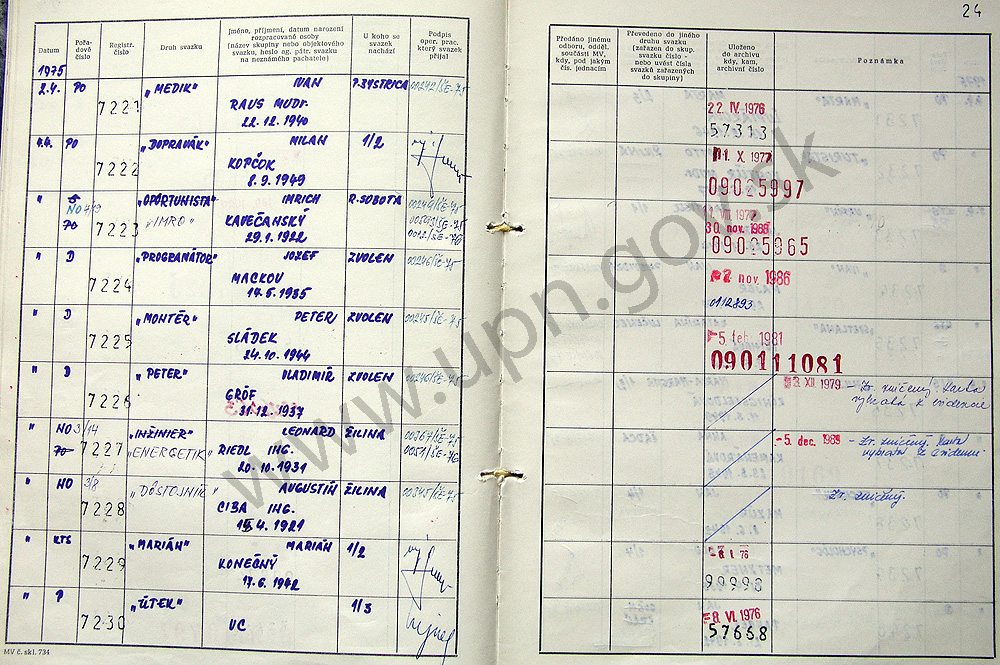 24
Datum
Pořadové číslo
Registr. číslo
Druh svazku
Jméno, příjmení, datum narození rozpracované osoby (název skupiny nebo objektového svazku, heslo ag. pátr. svazku na neznámého pachatele)
U koho se svazek nachází
Podpis oper. prac. který svazek přijal
Předáno jinému odboru, odděl. součásti MV, kdy, pod jakým čís. jednacím
Převedeno do jiného druhu svazku (zařazen do skup. svazku číslo - nebo uvést čísla svazků zařazených do skupiny)
Uloženo do archivu kdy, kam, archivní číslo
Poznámka
1975
2.4. PO 7221 „MEDIK" IVAN B.BYSTRICA 00242/ŠE-75
RAUS MUDr.
22.12.1940
22. IV. 1976
57313
4.4. PO 7222 „DOPRAVÁK" MILAN 1/2
KOPČOK
8.9.1949
11. X 1977
09025997
" NO 7223 „OPORTUNISTA" IMRICH R.SOBOTA 00249/ŠE-75
„IMRO" KAVEČANSKÝ
29.1.1922
30. nov. 1988
09025965
" D 7224 „PROGRAMÁTOR" JOZEF ZVOLEN 00246/ŠE-75
MACKOV
14.5.1935
nov. 1986
" D 7225 „MONTÉR" PETER ZVOLEN 00245/ŠE-75
SLÁDEK
24.10.1944
-5. feb. 1981
090111081
" D 7226 „PETER" VLADIMÍR ZVOLEN 00246/ŠE-75
GRÓF
31.12.1937
XII 1979 - Zv. zničený. Karta vybratá z evidencie
" NO 3/14 PO 7227 „INŽINIER" LEONARD ŽILINA 00367/ŠE-75
„ENERGETIK" RIEDL ING. 0051/ŠE-76
20.10.1931
-5. dec. 1989 - Zv. zničený. Karta vybratá z evidencie
" NO 3/8 7228 „DÔSTOJNÍK" AUGUSTÍN ŽILINA 00345/ŠE-75
CIBA ING.
4.1921
Zv. zničený.
" KTS 7229 „MARIÁN" MARIÁN 1/2
KONEČNÝ
17.6.1942
-8. I. 76
99998
" P 7230 „ÚTEK" 1/3
VC
-8. VI. 1976
57668
MV č. skl. 734
www.upn.gov.sk